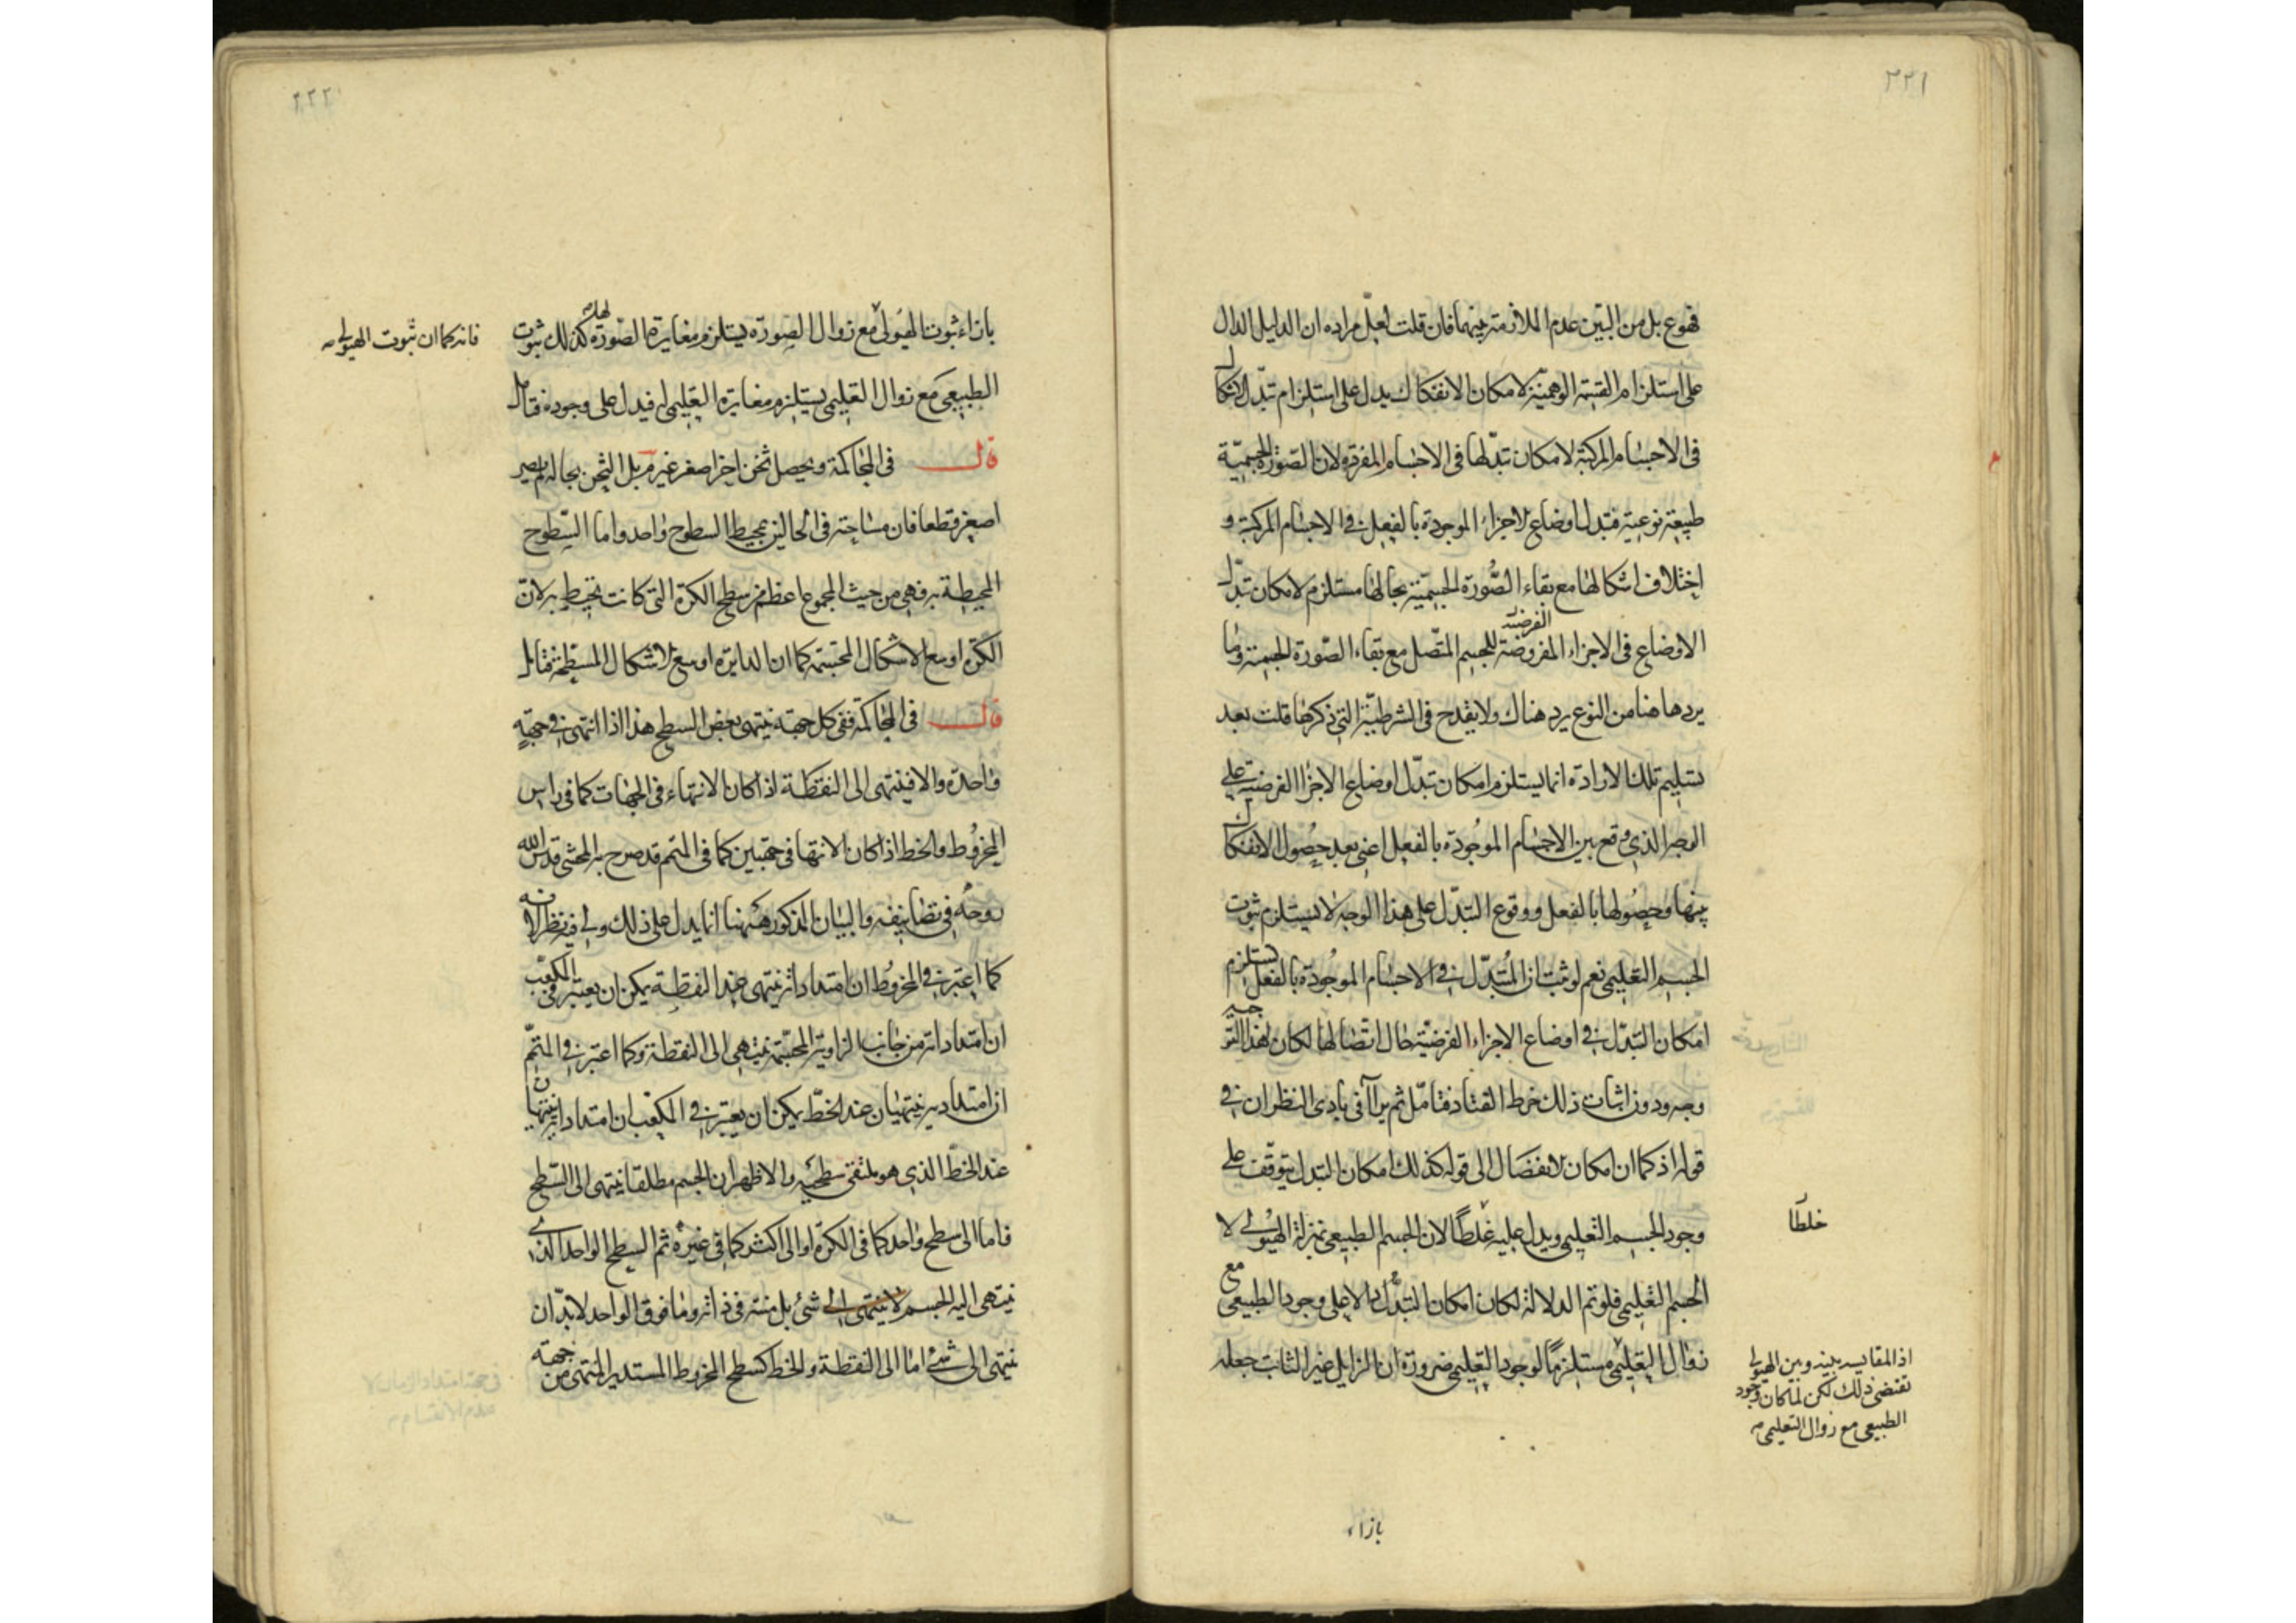 ٢٢١
فهو ع بل من البين عدم الملازمة بينهما فان قلت لعل مراده ان الدليل الدال
على استلزام القسمة الوهمية لامكان الانفكاك يدل على استلزام تبدل الاشكال
فى الاجسام المركبة لامكان تبدلها فى الاجسام المفردة لان الصورة الجسمية
طبيعة نوعية فتبدل اوضاع الاجزاء الموجودة بالفعل فى الاجسام المركبة و
اختلاف اشكالها مع بقاء الصورة الجسمية بحالها مستلزم لامكان تبدل
الاوضاع فى الاجزاء المفروضة الفرضية للجسم المتصل مع بقاء الصورة الجسمية وما
يرد هاهنا من النوع يرد هناك ولا يقدح فى الشرطية التى ذكرها قلت بعد
تسليم تلك الارادة انما يستلزم امكان تبدل اوضاع الاجزا الفرضية على
الوجه الذى وقع بين الاجسام الموجودة بالفعل اعنى بعد حصول الانفكاك
بينها وحصولها بالفعل ووقوع التبدل على هذا الوجه لا يستلزم ثبوت
الجسم التعليمى نعم لو ثبت ان التبدل فى الاجسام الموجودة بالفعل يستلزم
امكان التبدل فى اوضاع الاجزاء الفرضية حال اتصالها لكان لهذا التوجيه
وجه ودون اثبات ذلك خرط القتاد فتامل ثم يرآآى فى بادى النظر ان فى
قوله اذ كما ان امكان الانفصال الى قوله كذلك امكان التبدل يتوقف على
وجود الجسم التعليمى ويدل عليه غلطًا لان الجسم الطبيعى بمنزلة الهيولى لا
خلطا
الجسم التعليمى فلو تم الدلالة لكان امكان التبدل دالا على وجود الطبيعى مع
زوال التعليمى مستلزمًا لوجود التعليمى ضرورة ان الزايل غير الثابت جعله
اذ المقايسه بينه وبين الهيولى
تقتضى ذلك لكن لما كان وجود
الطبيعى مع زوال التعليمى
بازاء
٢٢٢
بازاء ثبوت الهيولى مع زوال الصورة يستلزم مغايرة الصورة لها كذلك ثبوت
فانه كما ان ثبوت الهيولى
الطبيعى مع زوال التعليمى يستلزم مغايرة التعليمى له فيدل على وجوده فتامل
قال فى المحاكمة ويحصل ثخن اخر اصغر غير م بل الثخن بحاله لم يصر
اصغر قطعا فان مساحته فى الحالين بمحيط السطوح واحد واما السطوح
المحيطة به فهى من حيث المجموع اعظم من سطح الكرة التى كانت تحيط به لان
الكرة اوسع الاشكال المجسمة كما ان الدايرة اوسع الاشكال المسطحة فتامل
قال فى المحاكمة ففى كل جهة ينتهى بعض السطح هذا اذا انتهى فى جهة
واحدة والا فينتهى الى النقطة اذا كان الانتهاء فى الجهات كما فى راس
المخروط والخط اذا كان الانتها فى جهتين كما فى المتمم قد صرح به المحشى قدس الله
روحه فى تصانيفه والبيان المذكور ههنا انما يدل على ذلك ولى فيه نظر لانه
كما اعتبر فى المخروط ان امتداداته ينتهى عند النقطة يمكن ان يعتبر فى المكعب
ان امتداداته من جانب الزاوية المجسمة ينتهى الى النقطة وكما اعتبر فى المتمم
ان امتداديه ينتهيان عند الخط يمكن ان يعتبر فى المكعب ان امتداديه ينتهيان
عند الخط الذى هو ملتقى سطحيه والاظهر ان الجسم مطلقا ينتهى الى السطح
فاما الى سطح واحد كما فى الكرة او الى اكثر كما فى غيره ثم السطح الواحد الذى
ينتهى اليه الجسم لا ينتهى الى شئ بل منته فى ذاته وما فوق الواحد لا بد ان
ينتهى الى شئ اما الى النقطة والخط كسطح المخروط المستدير المنتهى من جهة